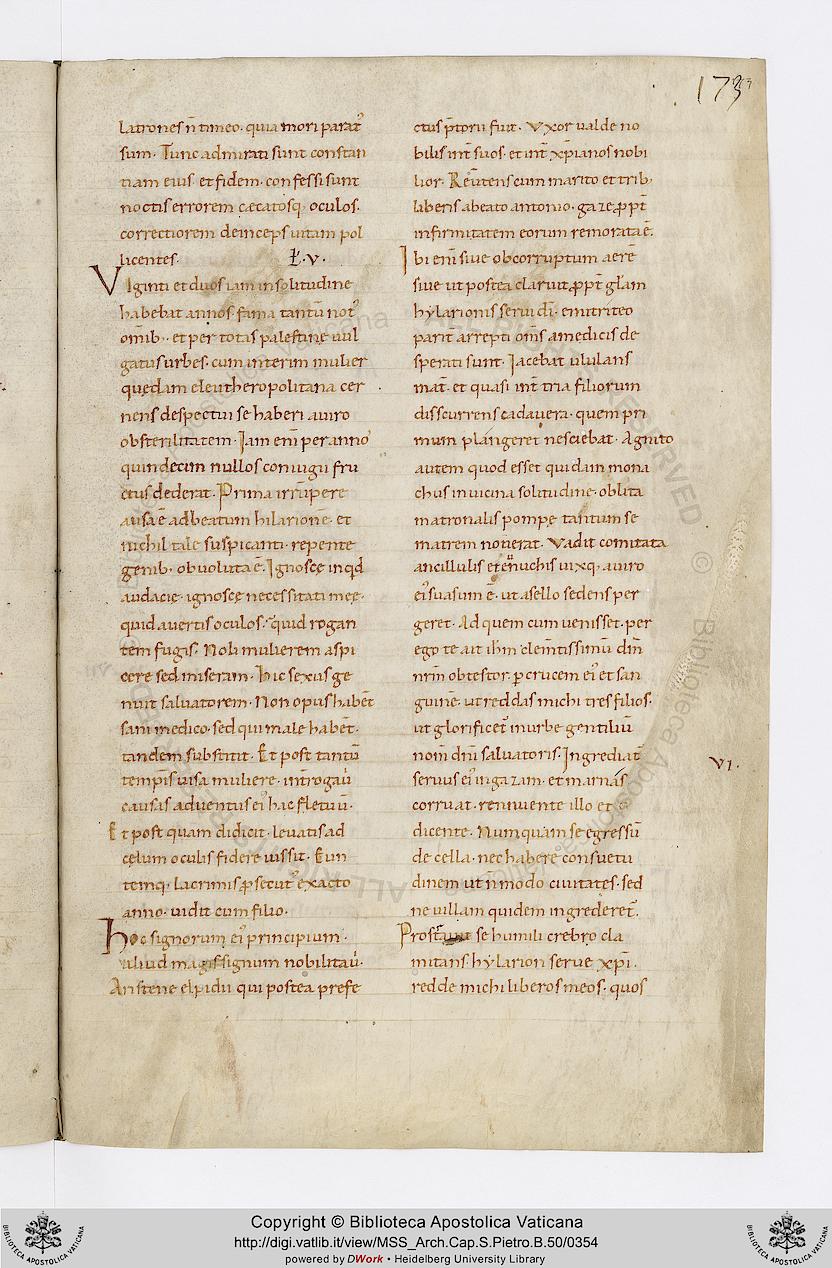 173
latrones n̄ timeo. quia mori parat᾽
sum. Tunc admirati sunt constan
tiam eius. et fidem. confessi sunt
noctis errorem cæcatosq. oculos.
correctiorem deinceps uitam pol
licentes. Ł.v.
Viginti et duos iam in solitudine
habebat annos fama tantū not᾽
omīb. et per totas palestine uul
gatus urbes. cum interim mulier
quedam eleutheropolitana cer
nens despectui se haberi a uiro
ob sterilitatem. Iam eni̅ per anno᾽
quindecim nullos coniugii fru
ctus dederat. Prima irrūpere
ausa ē ad beatum hilarionē. et
nichil tale suspicanti. repente
genib. obuoluta ē. Ignosce inqd
audacie. ignosce necessitati mee.
quid auertis oculos. quid rogan
tem fugis. Noli mulierem aspi
cere sed miseram. hic sexus ge
nuit saluatorem. Non opus habēt
sani medico. sed qui male habēt.
tandem substitit. Et post tantū
tempīs uisa muliere. int̄rogau̅
causas aduentus ei᾽ hac fletuū.
Et post quam didicit. leuatis ad
cęlum oculis fidere iussit. Eun
temq. lacrimis p̱secut᾽ exacto
anno. uidit cum filio.
hoc signorum ei᾽ principium.
aliud magis signum nobilitau̅.
Aristene elpidii qui postea prefe
ctus p̄torii fuit. Vxor ualde no
bilis int̄ suos. et int̄ xp̄ianos nobi
lior. Reu̅tens cum marito et trib.
liberis a beato antonio. gaze p̱pt̄
infirmitatem eorum remorata ē.
Ibi eni̅ siue ob corruptum aerē
siue ut postea claruit p̱pt̄ gl̄am
hylarionis serui dī. emitriteo
parit̄ arrepti om̄s a medicis de
sperati sunt. Iacebat ululans
mat̄. et quasi int̄ tria filiorum
disscurrens cadauera. quem pri
mum plangeret nesciebat. Agnito
autem quod esset quidam mona
chus in uicina solitudine. oblita
matronalis pompę tantum se
matrem nouerat. Vadit comitata
ancillulis et eunuchis uixq. a uiro
ei᾽ suasum ē. ut asello sedens per
geret. Ad quem cum uenisset. per
ego te ait ih̄m clem̄tissimū dn̄m
nr̄m obtestor. p̱ crucem ei᾽ et san
guinē. ut reddas michi tres filios.
ut glorificet᾽ in urbe gentiliū
nom̄ dn̄i saluatoris. Ingrediat᾽ VI.
seruus ei᾽ in gazam. et marnas
corruat. rennuente illo et
dicente. Numquam se egressū
de cella. nec habere consuetu
dinem ut n̄ modo ciuitates. sed
ne uillam quidem ingrederet᾽.
se humili crebro cla
mitans hylarion serue xp̄i.
redde michi liberos meos. quos
Copyright © Biblioteca Apostolica Vaticana
http://digi.vatlib.it/view/MSS_Arch.Cap.S.Pietro.B.50/0354
powered by DWork • Heidelberg University Library